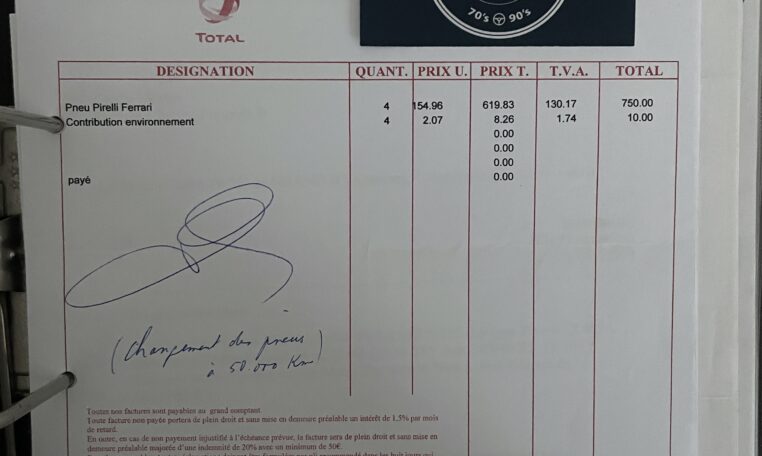 TOTAL
70's 90's
DESIGNATION QUANT. PRIX U. PRIX T. T.V.A. TOTAL
Pneu Pirelli Ferrari 4 154.96 619.83 130.17 750.00
Contribution environnement 4 2.07 8.26 1.74 10.00
0.00
0.00
0.00
payé 0.00
(changement des pneus)
à 50.000 Km
Toutes nos factures sont payables au grand comptant.
Toute facture non payée portera de plein droit et sans mise en demeure préalable un intérêt de 1,5% par mois
de retard.
En outre, en cas de non payement injustifié à l'échéance prévue, la facture sera de plein droit et sans mise en
demeure préalable majorée d'une indemnité de 20% avec un minimum de 50€.